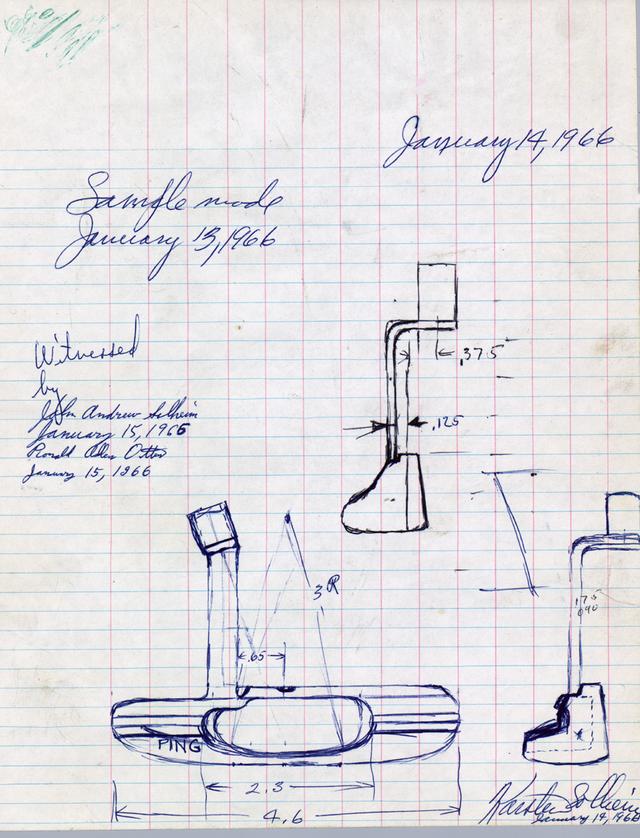 January 14, 1966
Sample mode
January 13, 1966
.375
Witnessed
by
John Andrew Solheim
January 15, 1966
.125
Ronald Allen Otto
January 15, 1966
3R
.175
.090
.65
PING
2.3
4.6
Karsten Solheim
January 14, 1966